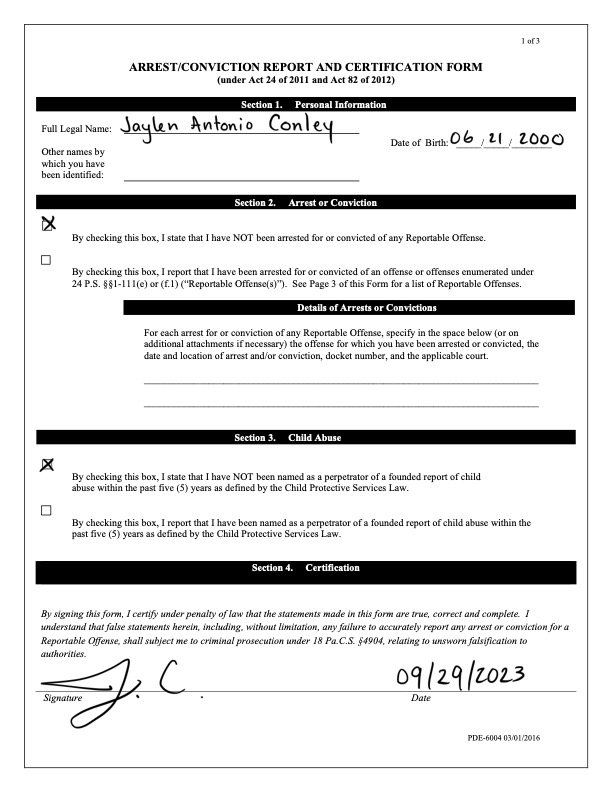 1 of 3
ARREST/CONVICTION REPORT AND CERTIFICATION FORM
(under Act 24 of 2011 and Act 82 of 2012)
Section 1. Personal Information
Full Legal Name: Jaylen Antonio Conley
Date of Birth: 06/21/2000
Other names by
which you have
been identified:
Section 2. Arrest or Conviction
By checking this box, I state that I have NOT been arrested for or convicted of any Reportable Offense.
By checking this box, I report that I have been arrested for or convicted of an offense or offenses enumerated under
24 P.S. §§1-111(e) or (f.1) (“Reportable Offense(s)”). See Page 3 of this Form for a list of Reportable Offenses.
Details of Arrests or Convictions
For each arrest for or conviction of any Reportable Offense, specify in the space below (or on
additional attachments if necessary) the offense for which you have been arrested or convicted, the
date and location of arrest and/or conviction, docket number, and the applicable court.
Section 3. Child Abuse
By checking this box, I state that I have NOT been named as a perpetrator of a founded report of child
abuse within the past five (5) years as defined by the Child Protective Services Law.
By checking this box, I report that I have been named as a perpetrator of a founded report of child abuse within the
past five (5) years as defined by the Child Protective Services Law.
Section 4. Certification
By signing this form, I certify under penalty of law that the statements made in this form are true, correct and complete. I
understand that false statements herein, including, without limitation, any failure to accurately report any arrest or conviction for a
Reportable Offense, shall subject me to criminal prosecution under 18 Pa.C.S. §4904, relating to unsworn falsification to
authorities.
J. C.
09/29/2023
Signature
Date
PDE-6004 03/01/2016